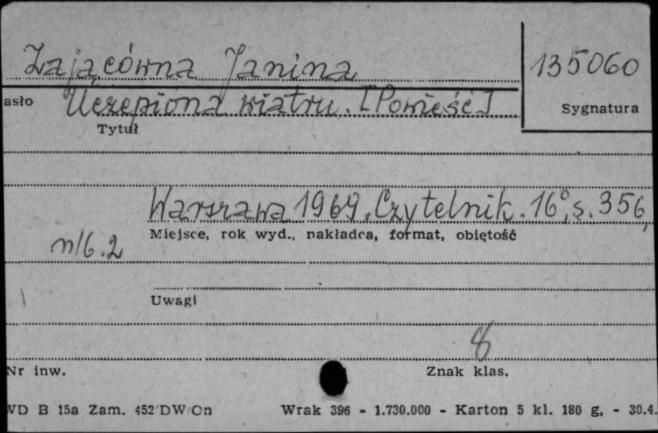 Zającówna Janina 135060
asło Uczepiona wiatru. [Powieść] Sygnatura
Tytuł
Warszawa 1969, Czytelnik. 16°, s. 356,
Miejsce, rok wyd., nakładca, format, objętość
n/6.2
Uwagi
8
Nr inw. Znak klas.
WD B 15a Zam. 452 DW/Cn Wrak 396 - 1.730.000 - Karton 5 kl. 180 g. - 30.4.